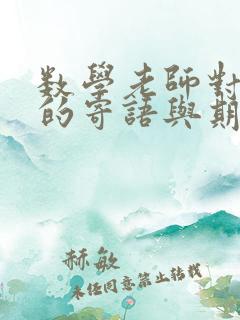 數學老師對
的寄語與期
赫敏
未經同意禁止轉載